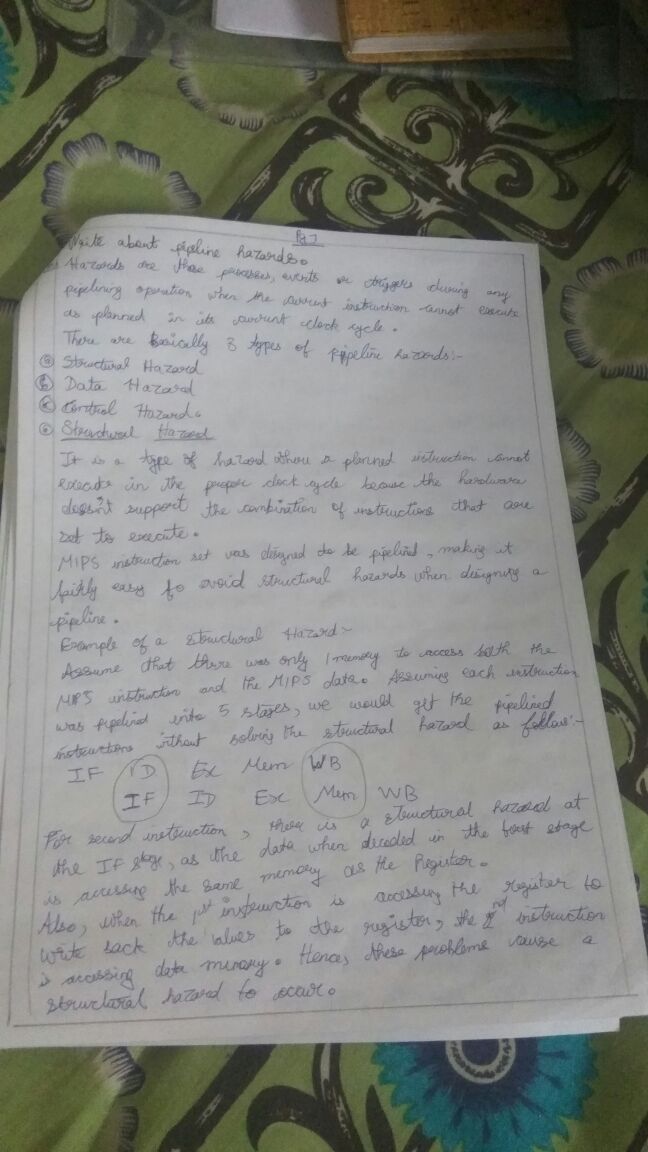 Pg 7
Write about pipeline hazards.
Hazards are those processes, events or triggers during any
pipelining operation when the current instruction cannot execute
as planned in its current clock cycle.
There are basically 3 types of pipeline hazards:-
(a) Structural Hazard
(b) Data Hazard
(c) Control Hazard.
Structural Hazard
It is a type of hazard where a planned instruction cannot
execute in the proper clock cycle because the hardware
doesn't support the combination of instructions that are
set to execute.
MIPS instruction set was designed to be pipelined, making it
fairly easy to avoid structural hazards when designing a
pipeline.
Example of a Structural Hazard:-
Assume that there was only 1 memory to access both the
MIPS instruction and the MIPS data. Assuming each instruction
was pipelined into 5 stages, we would get the pipelined
instructions without solving the structural hazard as follow:-
IF ID Ex Mem WB
IF ID Ex Mem WB
For second instruction, there is a structural hazard at
the IF stage, as the data when decoded in the first stage
is accessing the same memory as the Register.
Also, when the 1st instruction is accessing the register to
write back the values to the register, the 2nd instruction
is accessing data memory. Hence, these problems cause a
structural hazard to occur.